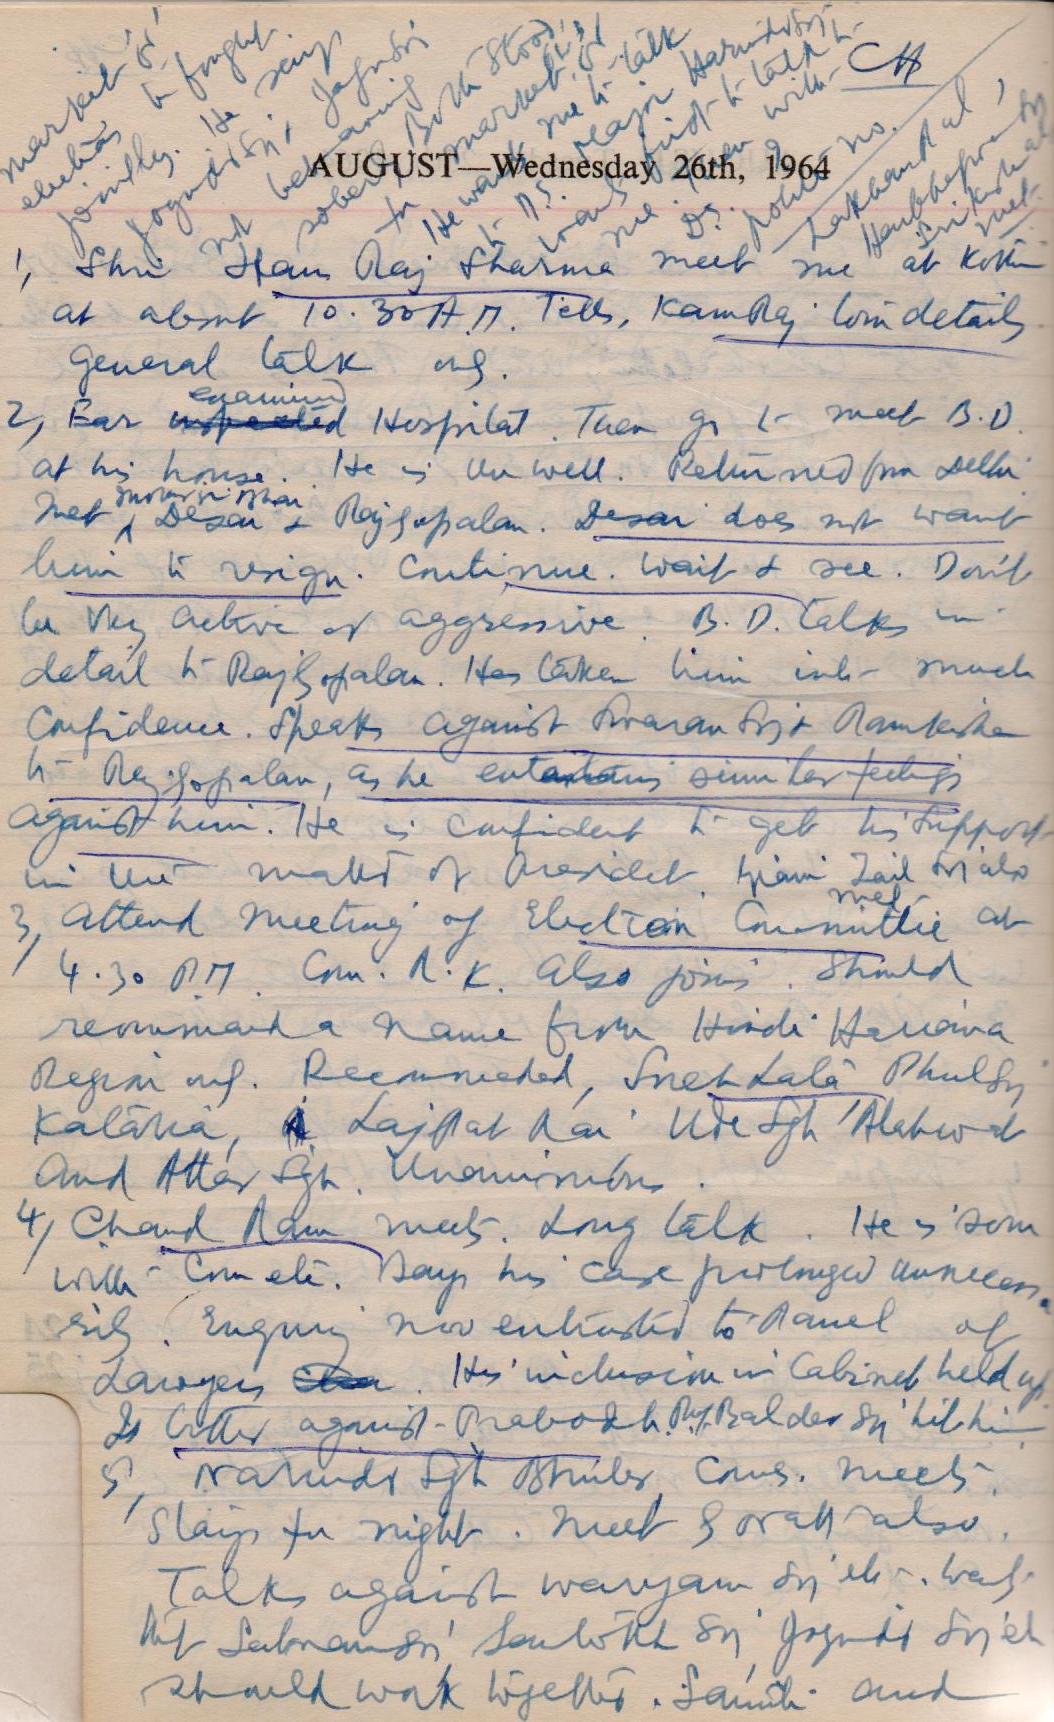 CH
AUGUST—Wednesday 26th, 1964
1, Shri Hans Raj Sharma meet me at Kothi
at about 10.30 A.M. Tells, KamRaj details
General talk only.
2, Ear examined Hospital. Then go to meet B.D.
at his house. He is unwell. Returned from Delhi
Met Morarji Bhai Desai & Rajgopalan. Desai does not want
him to resign. Continue. Wait & see. Don't
be very active or aggressive. B.D. talks in
detail to Rajgopalan. Has taken him into much
Confidence. Speaks against Swaran Sg & Ramkishan
to Rajgopalan, as he entertains similar feelings
against him. He is confident to get his support
in the matter of President. Giani Zail Sg also
met
3, Attend Meeting of Election Committee at
4.30 P.M. Com. R.K. also joins. Should
recommend a name from Hindi Hariana
Region only. Recommended, Sneh Lata Phul Sg
Kataria, Lajpat Rai Ude Sgh
and Attar Sgh. Unanimous.
4, Chand Ram meets. Long talk. He is sour
with Com etc. Says his case prolonged unneces-
sarily. Enquiry now entrusted to Panel of
Lawyers. His inclusion in Cabinet held up.
Is bitter against Prabodh. Baldev Sg
5, Narinder Sgh comes. Meets.
Stays for night. Meet also.
Talks against Waryam Sg etc.
that Sg Joginder Sg etc
should work together. and
market
elections to be fought
jointly. He says
Joginder Sg
not behaving
soberly. Both stood
for market
He wants me to talk
to D.S. Major Harinder Sg
wants first to talk to
me then with
D.S. no.
Lakhan Pal,
met